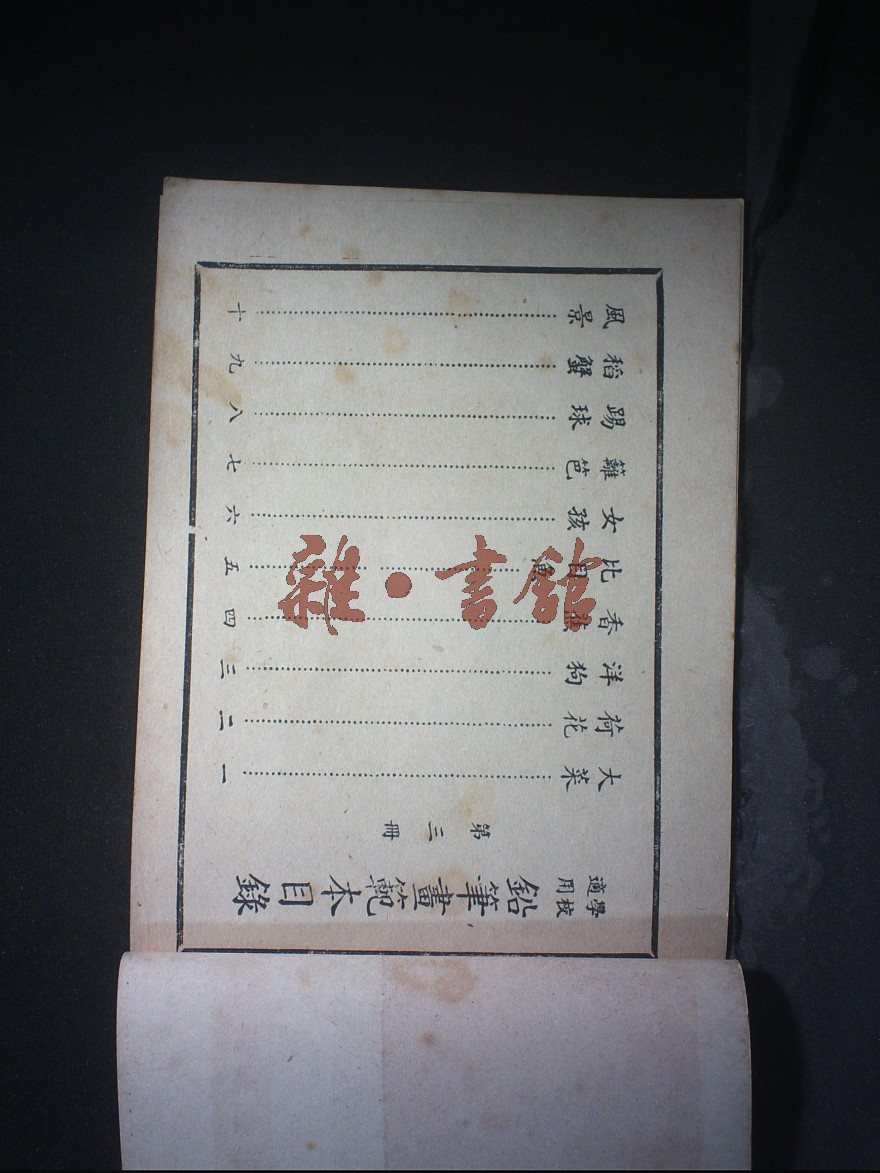 學校適用 鉛筆畫範本目錄
第三冊
大菜……一
荷花……二
洋狗……三
香……四
比目魚……五
女孩……六
籬笆……七
踢球……八
稻蟹……九
風景……十
雜·書館